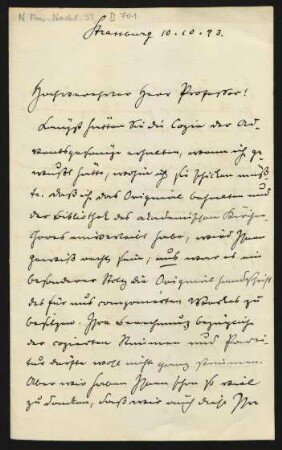 N. Mus. Nachl. 59 II 701
Strassburg 10.10.93.
Hochverehrter Herr Professor!
Längst hätten Sie die Copie der Ad-
ventsgesänge erhalten, wenn ich ge-
wußt hätte, wohin ich sie schicken müß-
te. Daß ich das Original behalten und
der Bibliothek des akademischen Kirchen-
chores einverleibt habe, wird Ihnen
gewiß recht sein; uns war es ein
besonderer Stolz die Originalhandschrift
des für uns componierten Werkes zu
besitzen. Ihre Berechnung bezüglich
der copierten Stimmen und Parti-
tur dürfte wohl nicht ganz stimmen.
Aber wir haben Ihnen schon so viel
zu danken, daß wir auch diese Ihre